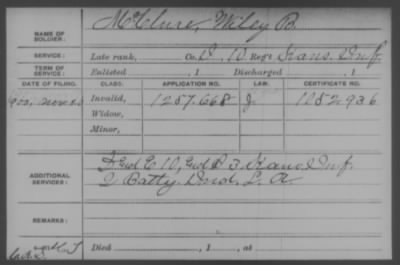 NAME OF SOLDIER: McClure, Wiley B.
SERVICE: Late rank, Co. D, 10 Reg't Kans. Inf.
TERM OF SERVICE: Enlisted , 1 Discharged , 1
DATE OF FILING. CLASS. APPLICATION NO. LAW. CERTIFICATE NO.
Invalid, 1257.668 J. 1052.936
Widow,
Minor,
ADDITIONAL SERVICES: E 10, B 3. Kans Inf.
2 Batty. Ind. L. A.
REMARKS:
Died , 1 , at